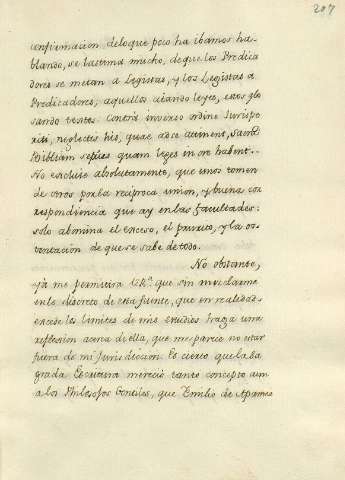 207
confirmacion deloque poco ha ibamos ha-
blando, se lastima mucho, de que los Predica
dores se metan a Legistas, y los Legistas a
Predicadores; aquellos citando leyes, estos glo
sando textos. Contra inverso ordine Jurispe
riti, neglectis his, quae ad se attinent, Sacrã
Bibliam sepius quam leges in ore habent.
No excluio absolutamente, que unos tomen
de otros por la reciproca union, y buena cor
respondiencia que ay en las facultades:
solo abomina el exceso, el prurito, y la os
tentacion de que se sabe de todo.
No obstante,
ya me permitira que sin mesclarme
en lo discreto de esta fuente, que en realidad
excede los limites de mis estudios haga una
reflexion acerca de ella, que me parece no estar
fuera de mi Jurisdiccion. Es cierto que la Sa
grada Escritura mereció tanto concepto aun
a los Philosofos Gentiles, que Emilio de Apamea